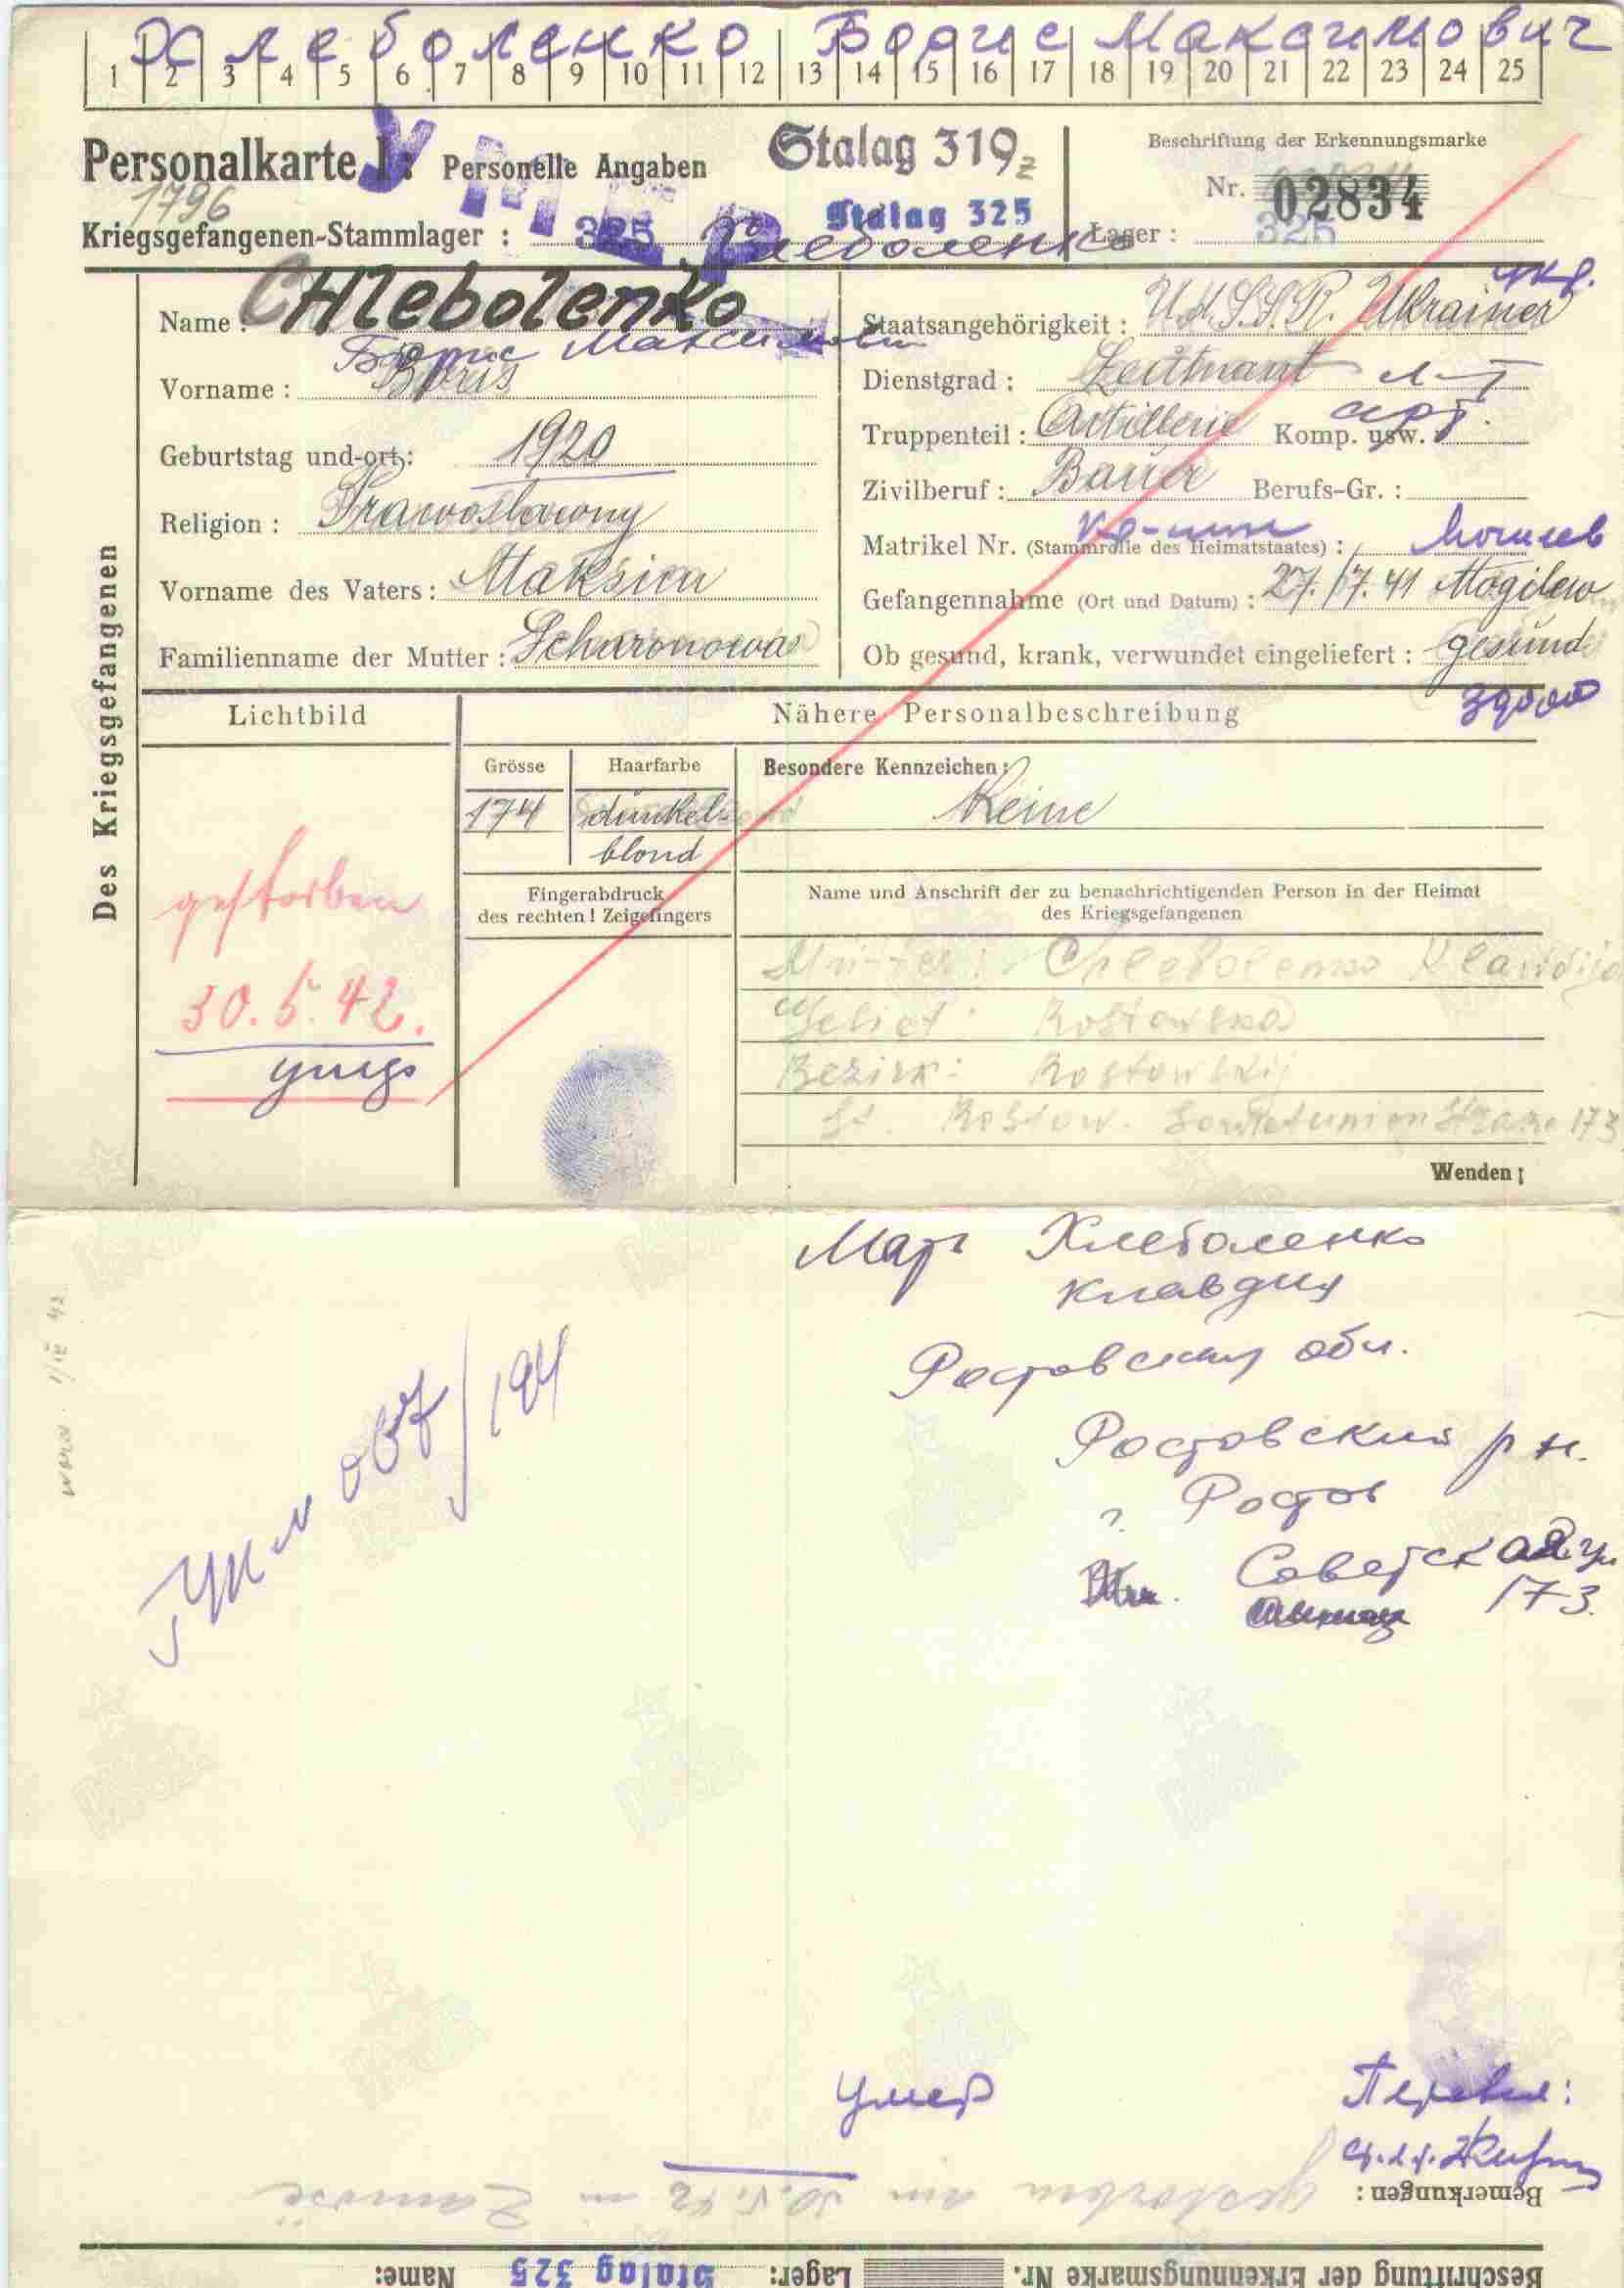 Хлеболенко Борис Максимович
1 2 3 4 5 6 7 8 9 10 11 12 13 14 15 16 17 18 19 20 21 22 23 24 25
Personalkarte I: Personelle Angaben
Stalag 319 z
Beschriftung der Erkennungsmarke
1796
УМЕР
Stalag 325
Nr. 02834
Kriegsgefangenen-Stammlager : 325
Хлеболенко
Lager : 325
Des Kriegsgefangenen
Name : CHlebolenko
Борис Максимович
Vorname : Boris
Geburtstag und-ort: 1920
Religion : Prawoslawny
Vorname des Vaters : Maksim
Familienname der Mutter : Scharonowa
укр.
Staatsangehörigkeit : U.d.S.S.R. Ukrainer
Dienstgrad : Leutnant л-т
Truppenteil : Artillerie Komp. usw. арт.
Zivilberuf : Bauer Berufs-Gr. :
Matrikel Nr. (Stammrolle des Heimatstaates) :
Могилев
Gefangennahme (Ort und Datum) : 27./7. 41 Mogilew
Ob gesund, krank, verwundet eingeliefert : gesund
здоров
Lichtbild
Nähere Personalbeschreibung
Grösse
Haarfarbe
Besondere Kennzeichen:
174
dunkel-
blond
Keine
gestorben
30. 5. 42.
умер
Fingerabdruck
des rechten! Zeigefingers
Name und Anschrift der zu benachrichtigenden Person in der Heimat
des Kriegsgefangenen
Mutter: Chlebolenko Klawdija
Gebiet: Rostowskaja
Bezirk: Rostowskij
St. Rostow. Sowjetunion Strasse 173
Wenden!
Мать Хлеболенко
Клавдия
Ростовская обл.
Ростовский р н.
г. Ростов
Советская ул
173.
умер
Перевел:
Bemerkungen: Gestorben am 30.5.42 in Zamosc
Beschriftung der Erkennungsmarke Nr.
Lager: Stalag 325
Name: